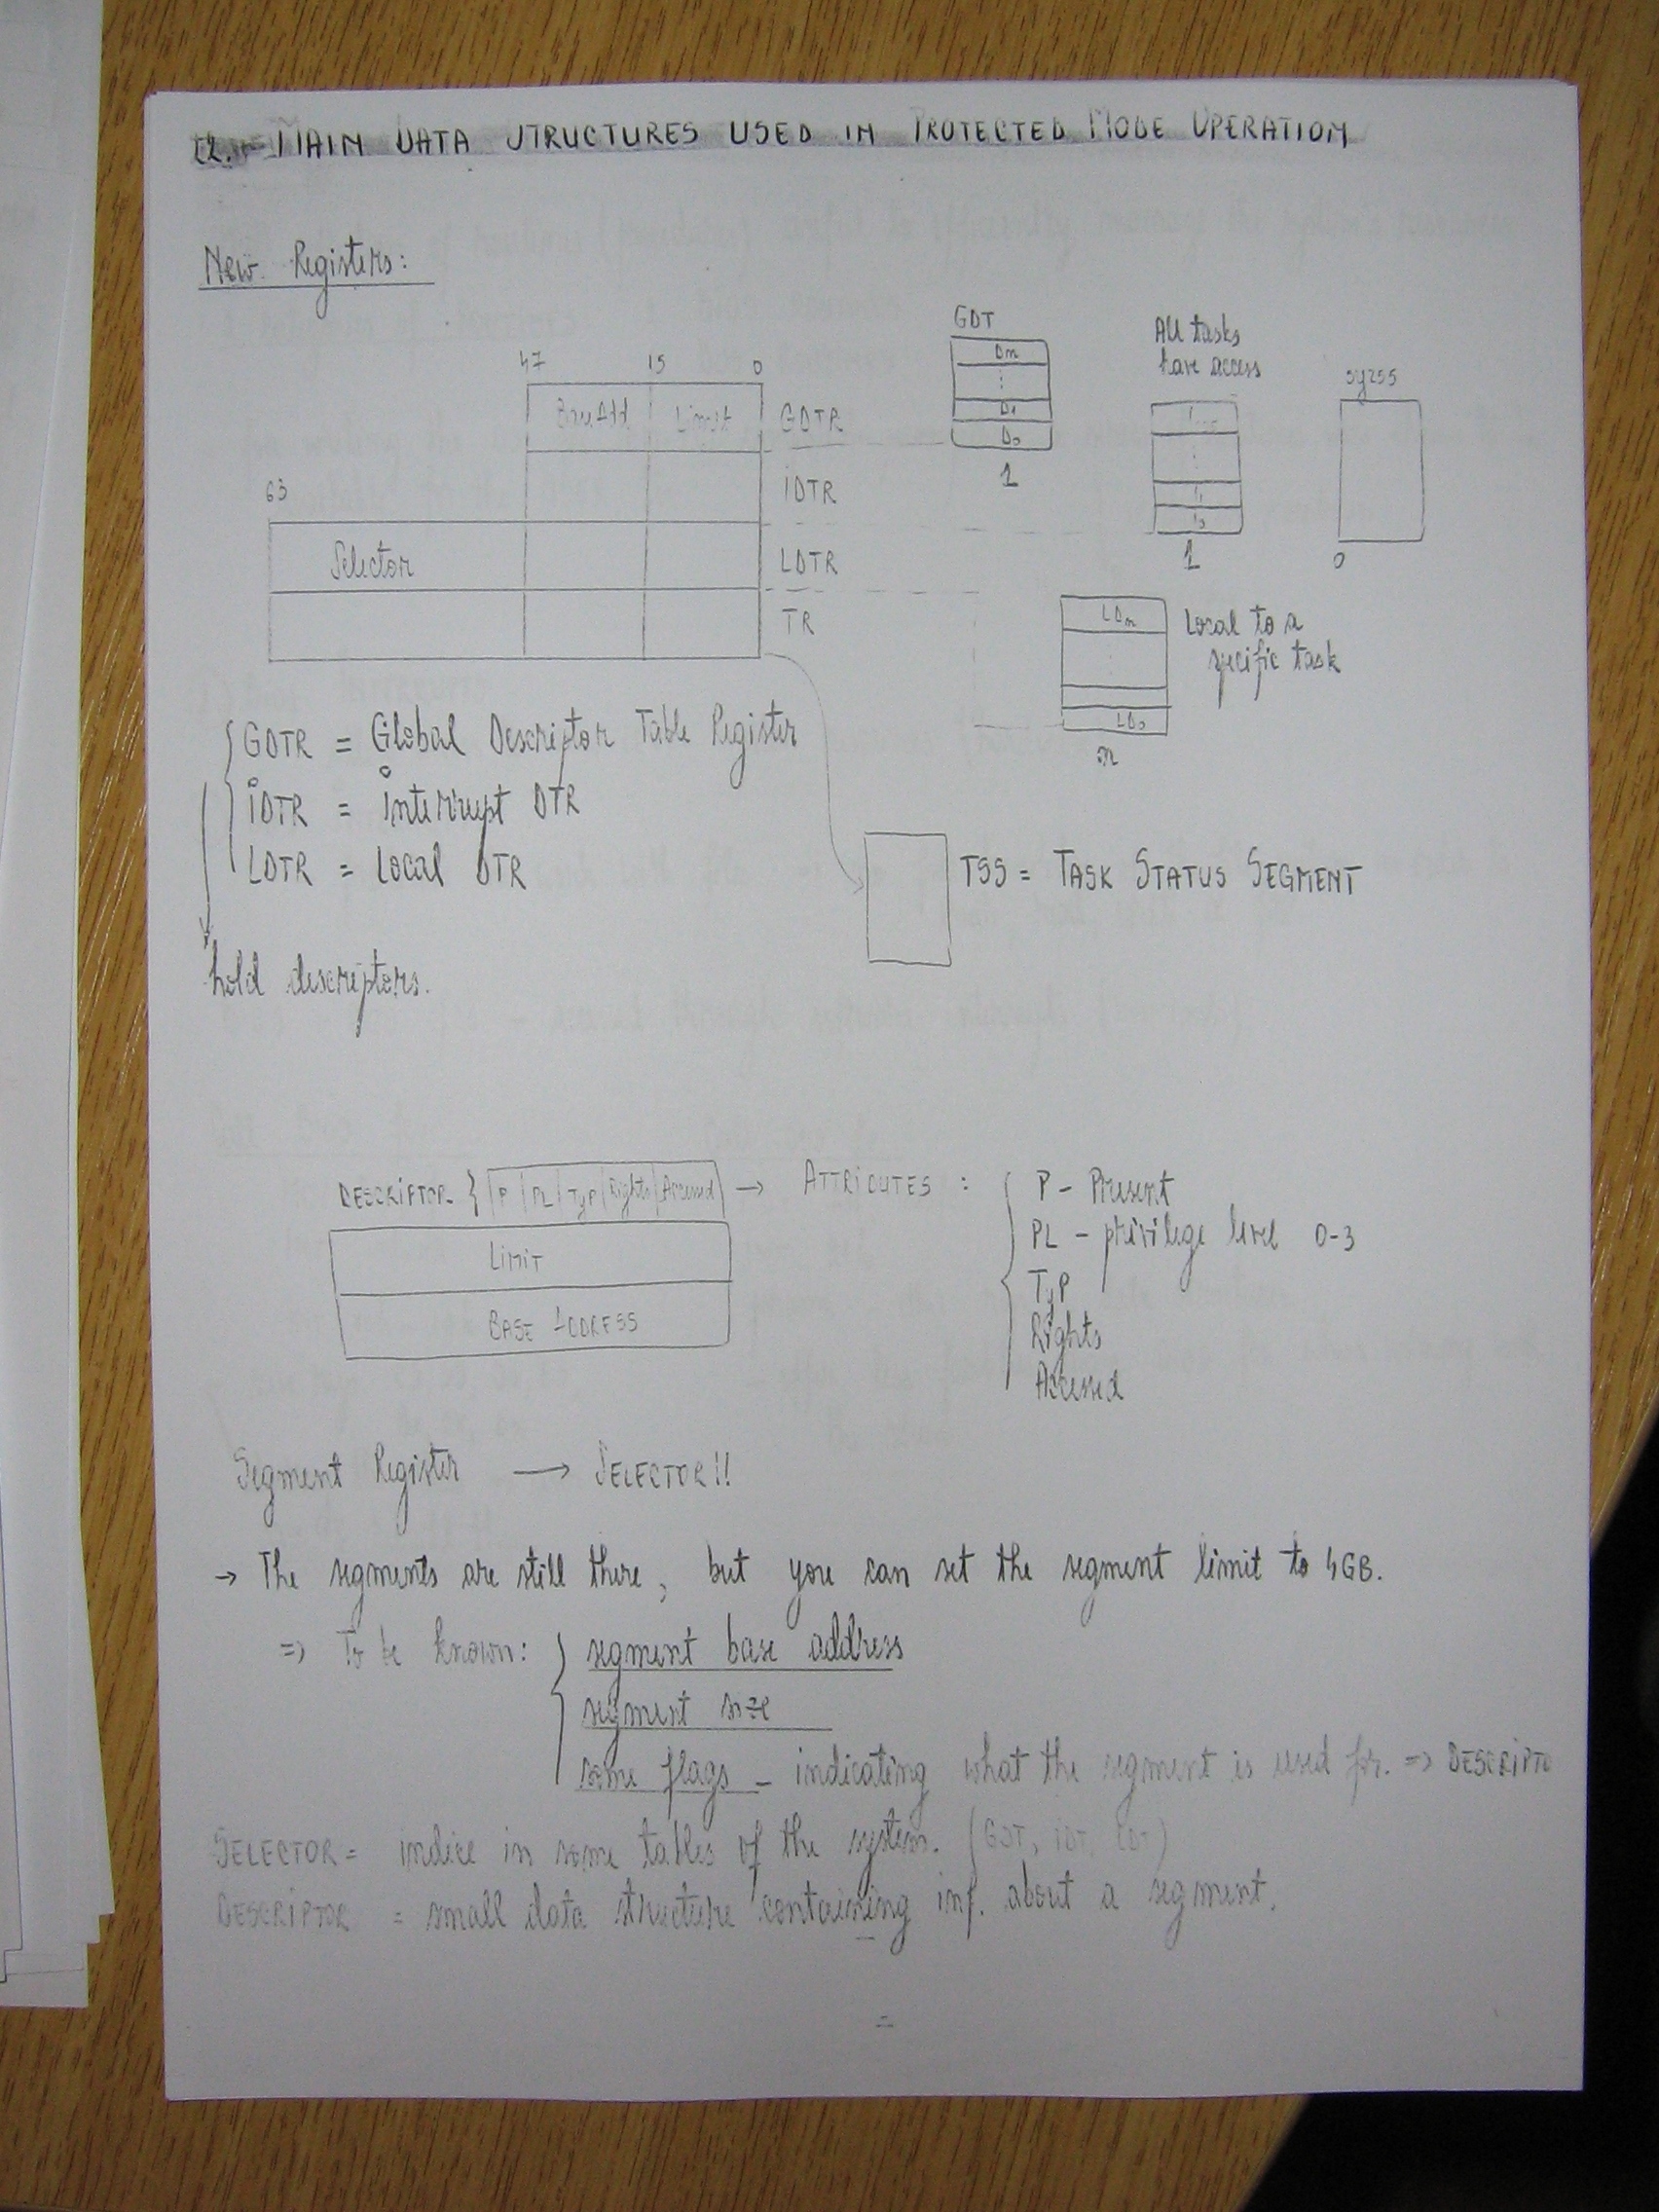 12. MAIN DATA STRUCTURES USED IN PROTECTED MODE OPERATION
New Registers:
GDT
All tasks
have access
47 15 0
Dn
Base Add Limit GDTR
D1
D0
1
63
IDTR
I1
I0
1
0
Selector LDTR
TR
LDn
Local to a
specific task
LD0
n
GDTR = Global Descriptor Table Register
IDTR = Interrupt DTR
LDTR = Local DTR
TSS = TASK STATUS SEGMENT
hold descriptors.
DESCRIPTOR { P PL TYP Rights Accessed → ATTRIBUTES :
LIMIT
BASE ADDRESS
P - Present
PL - privilege level 0-3
TYP
Rights
Accessed
Segment Register → SELECTOR!!
→ The segments are still there, but you can set the segment limit to 4GB.
=> To be known: segment base address
segment size
some flags - indicating what the segment is used for. => DESCRIPTO
SELECTOR = indice in some tables of the system. (GDT, IDT, LDT)
DESCRIPTOR = small data structure containing inf. about a segment.